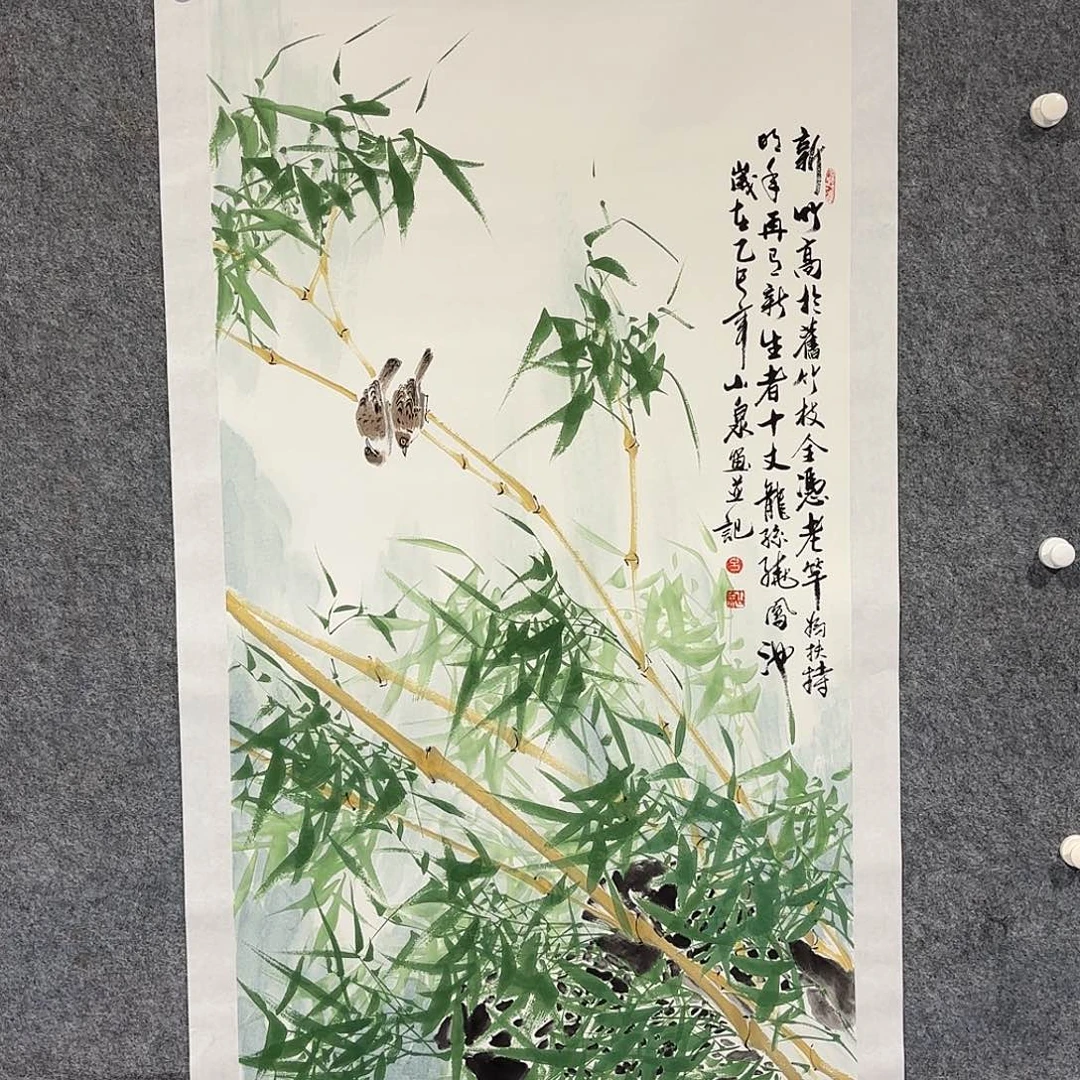 新竹高於舊竹枝全憑老竿為扶持
明年再有新生者十丈龍孫繞鳳池
歲在乙巳年小泉畫並記